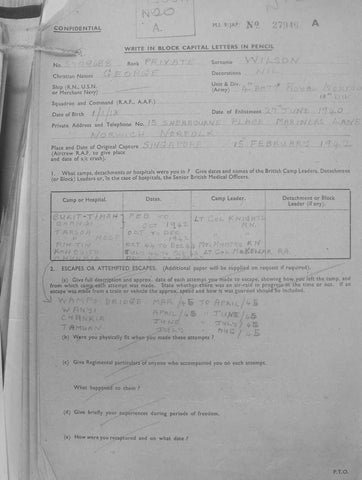 N20
A.
CONFIDENTIAL
M.I. 9/JAP/ No 27946 A
WRITE IN BLOCK CAPITAL LETTERS IN PENCIL
No. Rank PRIVATE Surname WILSON
Christian Names GEORGE Decorations NIL
Ship (R.N., U.S.N. or Merchant Navy)
Unit/Div. (Army) 4 BATT ROYAL NORFOLK
18 DIV
Squadron and Command (R.A.F., A.A.F.)
Date of Birth Date of Enlistment 27th JUNE 1940
Private Address and Telephone No. 15 SHERBOURNE PLACE MARINERS LANE
NORWICH NORFOLK
Place and Date of Original Capture SINGAPORE 15 FEBRUARY 1942
(Aircrew R.A.F. to give place
and date of a/c crash).
1. What camps, detachments or hospitals were you in? Give dates and names of the British Camp Leaders, Detachment
(or Block) Leaders or, in the case of hospitals, the Senior British Medical Officers.
Camp or Hospital. Dates. Camp Leader. Detachment or Block Leader (if any).
BUKIT-TIMAH FEB TO LT COL KNIGHTS
OCT 1942 R.N.
TARSOA OCT TO DEC "
LT COL MCKELLAR RA
2. ESCAPES OR ATTEMPTED ESCAPES. (Additional paper will be supplied on request if required).
(a) Give full description and approx. date of each attempt you made to escape, showing how you left the camp, and
from which camp each attempt was made. State whether there was an air-raid in progress at the time or not. If an
escape was made from a train or vehicle the approx. speed and how it was guarded should be included.
WAMPO BRIDGE MAR /45 TO APRIL /45
APRIL /45 " JUNE /45
JUNE " JULY /45
TAMUAN JULY " AUG /45
(b) Were you physically fit when you made these attempts?
(c) Give Regimental particulars of anyone who accompanied you on each attempt.
What happened to them?
(d) Give briefly your experiences during periods of freedom.
(e) How were you recaptured and on what date?
P.T.O.